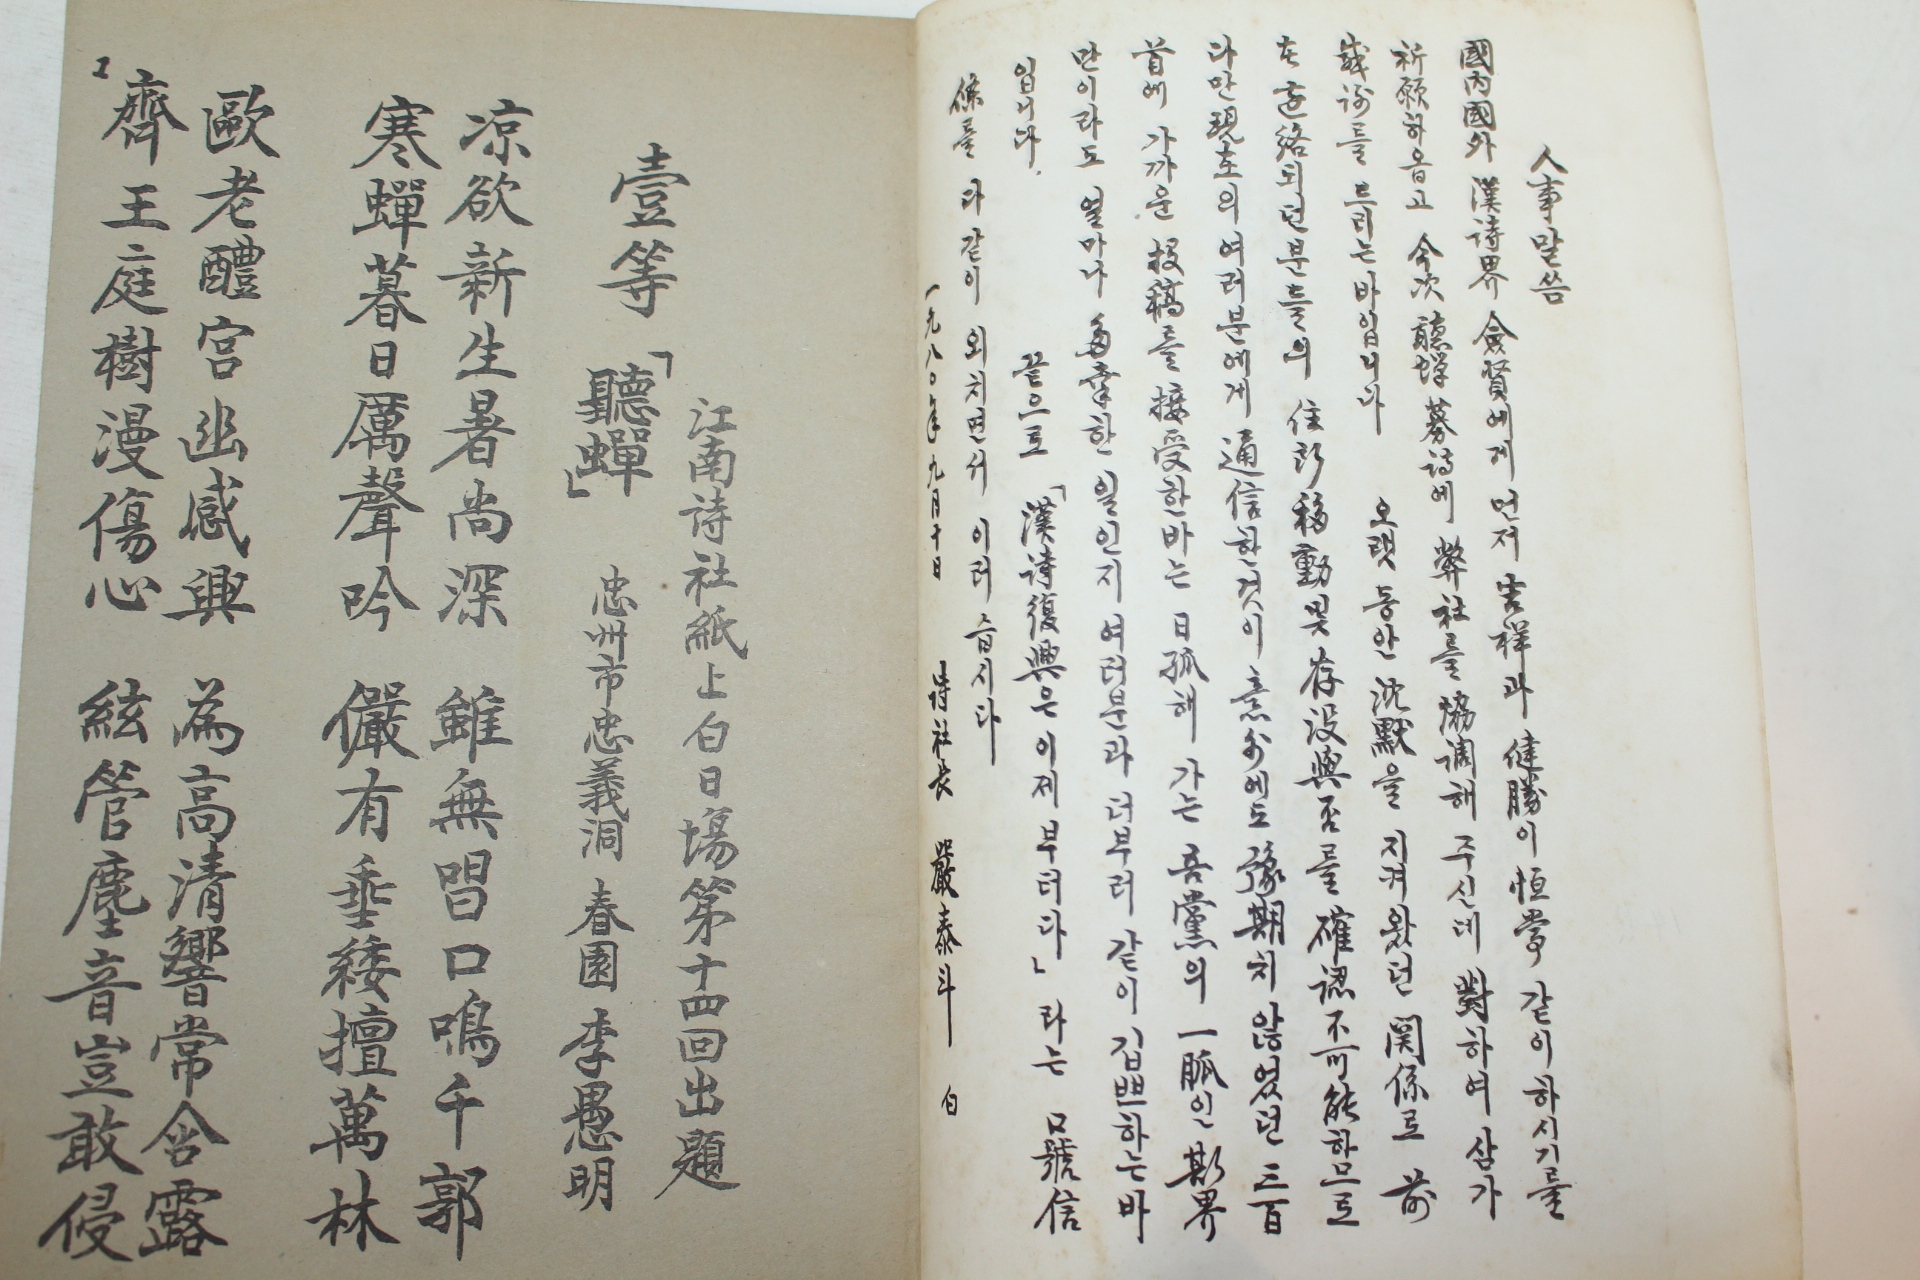 人事말씀
國內國外 漢詩界 僉賢에게 먼저 吉祥과 健勝이 恒常 같이하시기를
祈願하옵고 今次 聽蟬 募詩에 弊社를 協調해 주신데 對하여 삼가
感謝를 드리는바입니다 오랫동안 沈默을 지켜왔던 関係로 前
在 連絡되던분들의 住所移動 및 存没與否를 確認不可能하므로
다만 現在의 여러분에게 通信한것이 意外에도 豫期치 않었던 三百
首에 가까운 投稿를 接受한바는 日孤해 가는 吾黨의 一脈인 斯界
만이라도 얼마나 多幸한 일인지 여러분과 더부러 같이 깁쁘하는바
입니다. 끝으로 「漢詩復興은 이제부터다」 라는 口號信
條를 다같이 외치면서 이러습시다
一九八〇年九月十日 詩社長 嚴泰斗 白
江南詩社紙上白日場第十四回出題
壹等 「聽蟬」 忠州市忠義洞 春園 李愚明
凉欲新生暑尚深 雖無習口鳴千郭
寒蟬暮日厲聲吟 儼有垂緌擅萬林
歐老醴宮幽感興 為高清響常含露
齊王庭樹漫傷心 絃管塵音豈敢侵
1